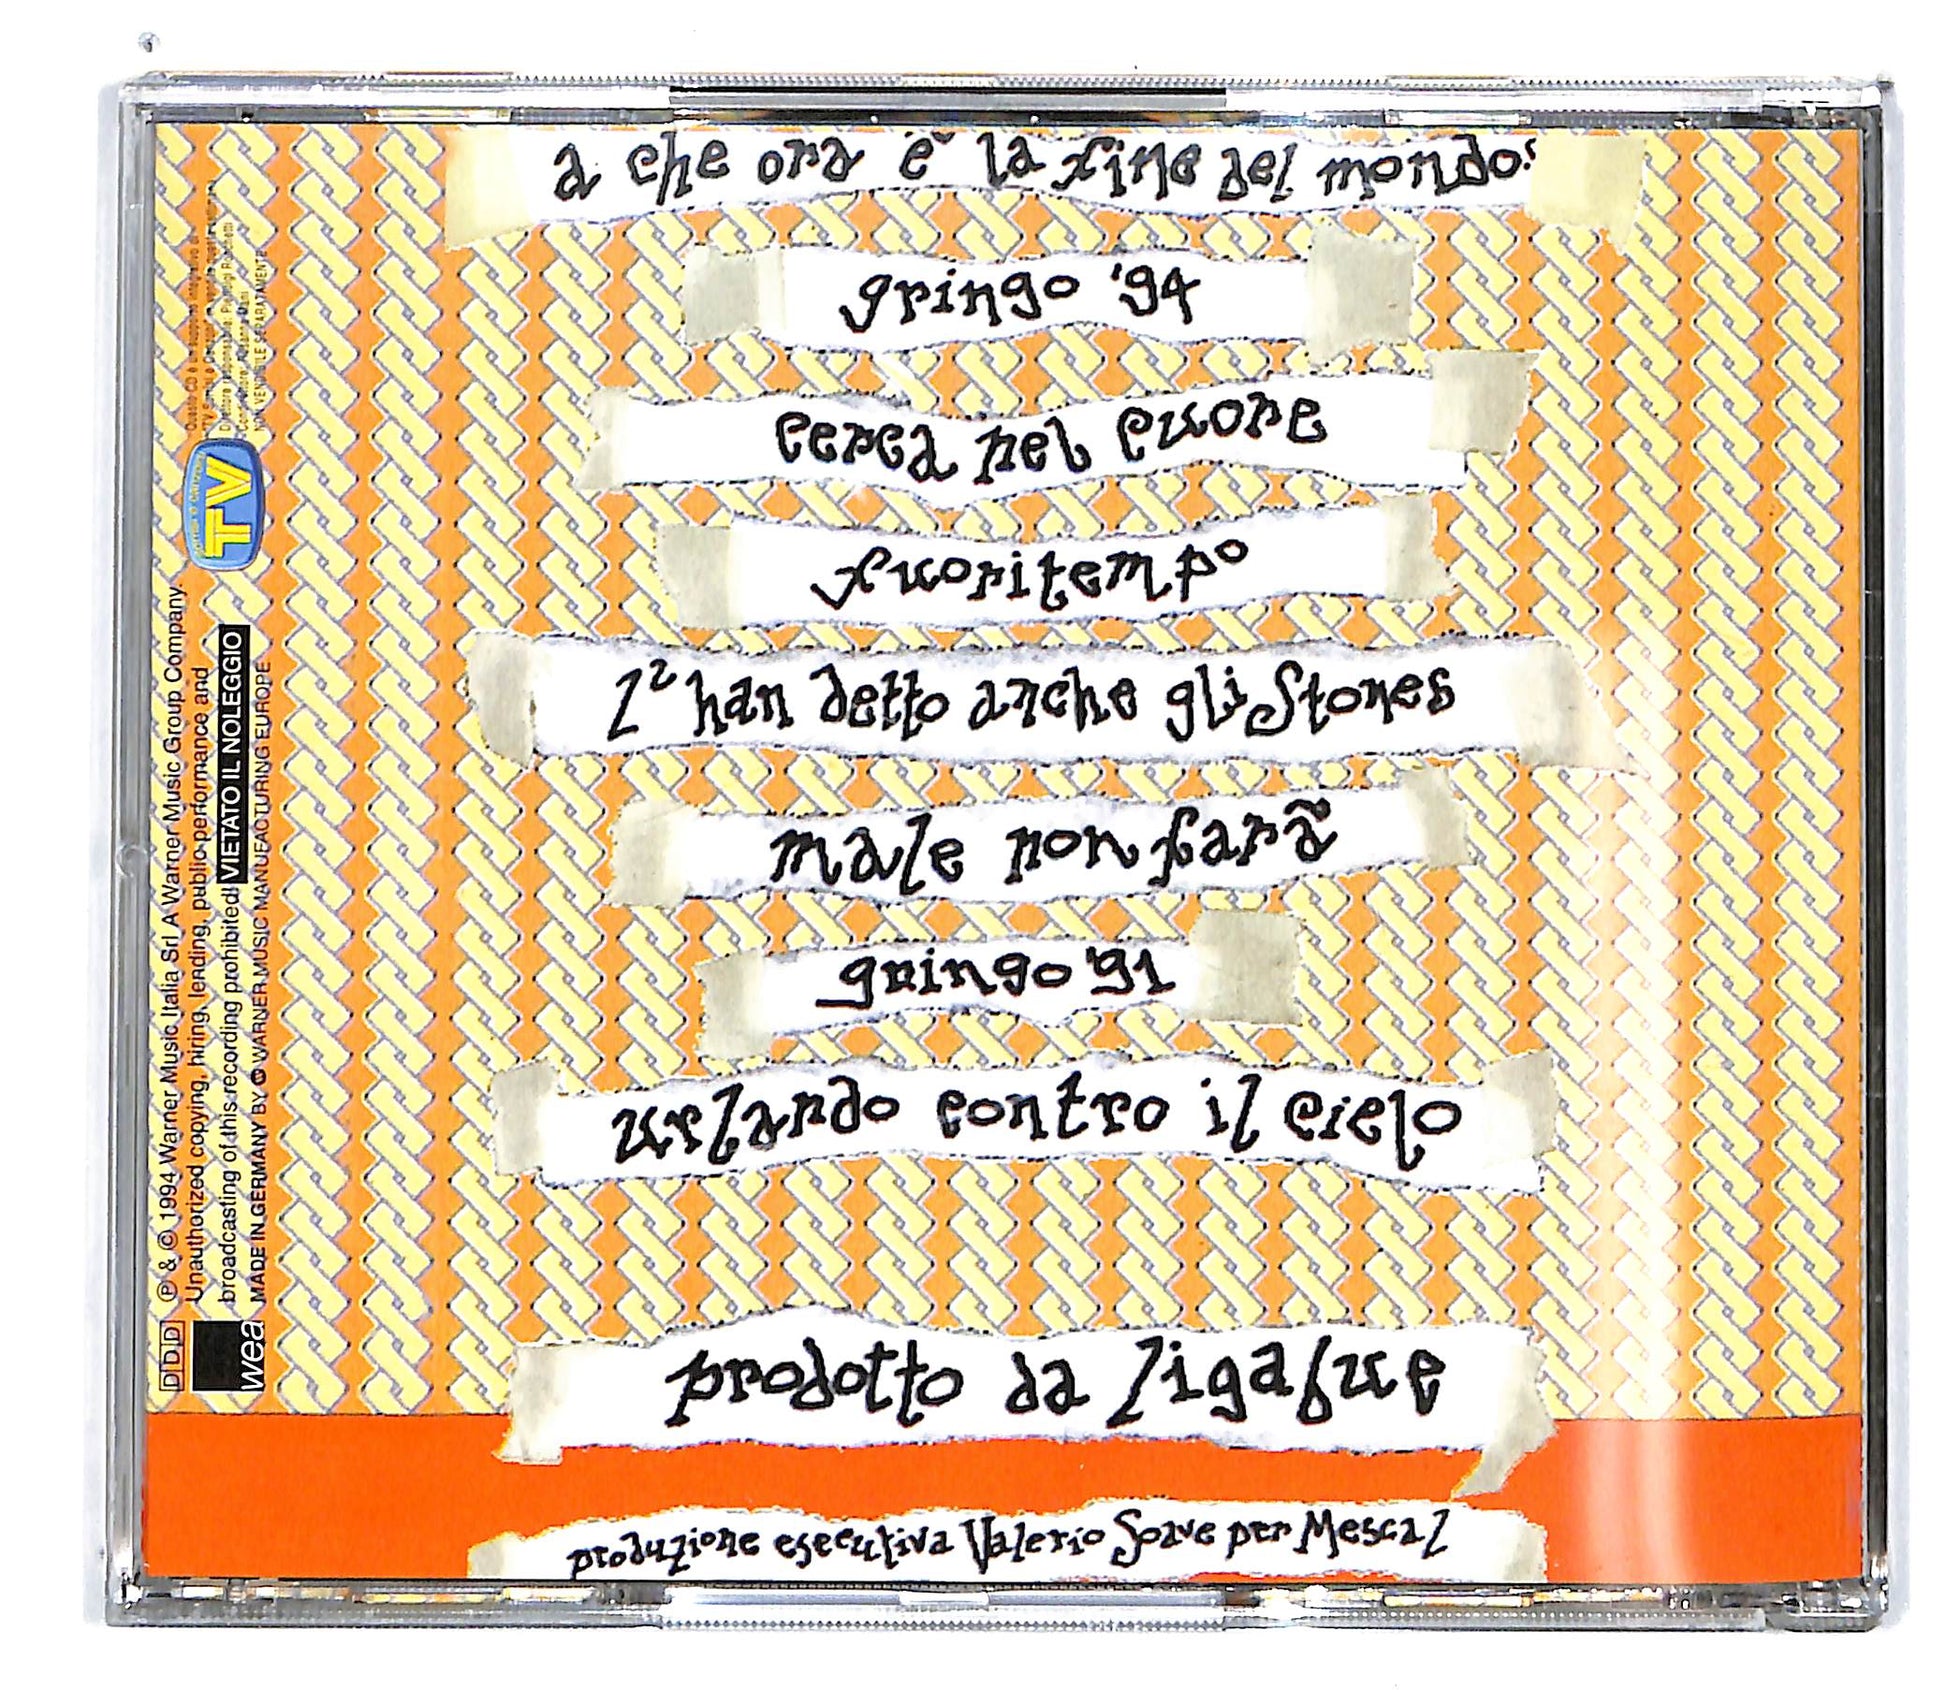 a che ora è la fine del mondo?
gringo '94
cerca nel cuore
fuoritempo
l'han detto anche gli Stones
male non farà
gringo '91
urlando contro il cielo
prodotto da ligabue
produzione esecutiva Valerio Soave per Mescal
DDD
℗ & © 1994 Warner Music Italia Srl A Warner Music Group Company.
Unauthorized copying, hiring, lending, public performance and
broadcasting of this recording prohibited! VIETATO IL NOLEGGIO
wea MADE IN GERMANY BY WARNER MUSIC MANUFACTURING EUROPE
TV
Questo CD è un supplemento integrativo di
"TV Sorrisi e Canzoni"
Direttore responsabile: Pierluigi Ronchetti
NON VENDIBILE SEPARATAMENTE